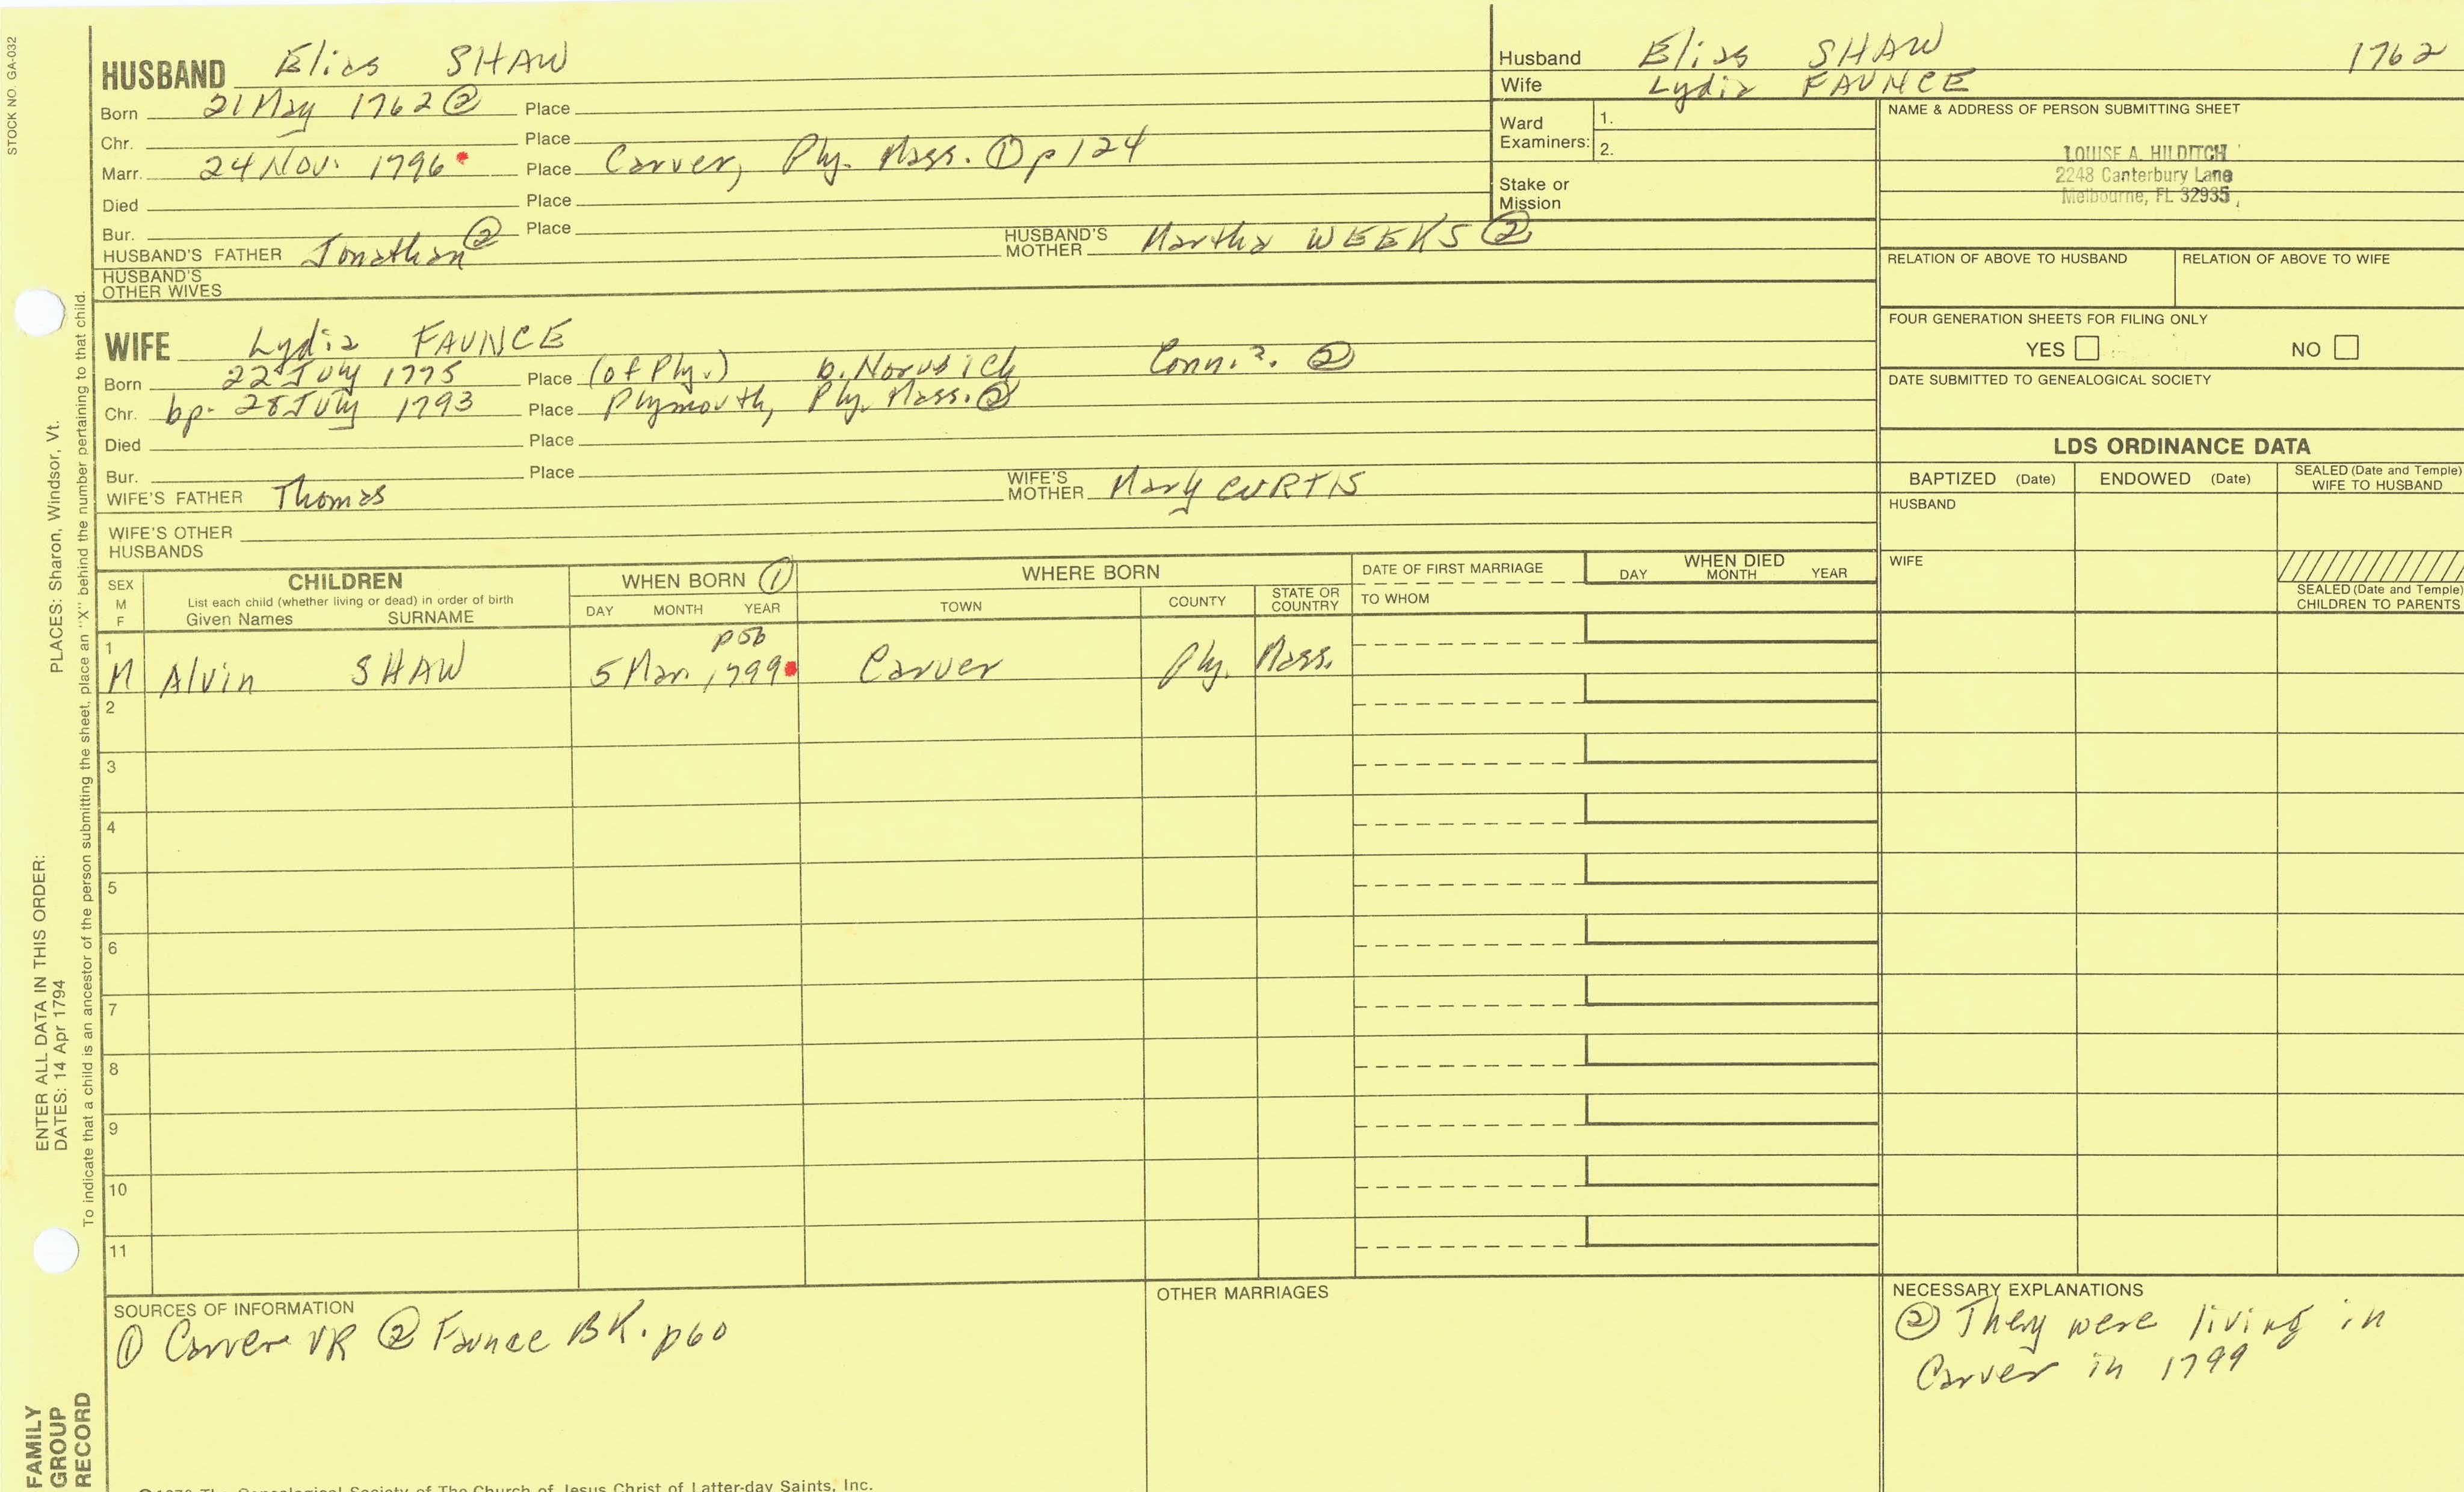 STOCK NO. GA-032
HUSBAND Elias SHAW
Born 21 May 1762 ② Place
Chr. Place
Marr. 24 Nov. 1796 Place Carver, Ply. Mass. ① p 124
Died Place
Bur. Place
HUSBAND'S FATHER Jonathan ② HUSBAND'S MOTHER Martha WEEKS ②
HUSBAND'S OTHER WIVES
WIFE Lydia FAUNCE
Born 22 July 1775 Place (of Ply.) b. Norwich Conn.?. ②
Chr. bp. 28 July 1793 Place Plymouth, Ply. Mass. ②
Died Place
Bur. Place
WIFE'S FATHER Thomas WIFE'S MOTHER Mary CURTIS
WIFE'S OTHER HUSBANDS
Husband Elias SHAW 1762
Wife Lydia FAUNCE
Ward Examiners: 1.
2.
Stake or Mission
NAME & ADDRESS OF PERSON SUBMITTING SHEET
LOUISE A. HILDITCH
2248 Canterbury Lane
Melbourne, FL 32935
RELATION OF ABOVE TO HUSBAND RELATION OF ABOVE TO WIFE
FOUR GENERATION SHEETS FOR FILING ONLY
YES NO
DATE SUBMITTED TO GENEALOGICAL SOCIETY
LDS ORDINANCE DATA
BAPTIZED (Date) ENDOWED (Date) SEALED (Date and Temple) WIFE TO HUSBAND
HUSBAND
WIFE
SEALED (Date and Temple) CHILDREN TO PARENTS
SEX M F
CHILDREN
List each child (whether living or dead) in order of birth
Given Names SURNAME
WHEN BORN ①
DAY MONTH YEAR
WHERE BORN
TOWN COUNTY STATE OR COUNTRY
DATE OF FIRST MARRIAGE
TO WHOM
WHEN DIED
DAY MONTH YEAR
p56
1 M Alvin SHAW 5 Mar. 1799 Carver Ply. Mass.
2
3
4
5
6
7
8
9
10
11
SOURCES OF INFORMATION
① Carver VR ② Faunce BK. p60
OTHER MARRIAGES
NECESSARY EXPLANATIONS
② They were living in
Carver in 1799
ENTER ALL DATA IN THIS ORDER:
DATES: 14 Apr 1794 PLACES: Sharon, Windsor, Vt.
To indicate that a child is an ancestor of the person submitting the sheet, place an "X" behind the number pertaining to that child.
FAMILY
GROUP
RECORD
The Genealogical Society of The Church of Jesus Christ of Latter-day Saints, Inc.